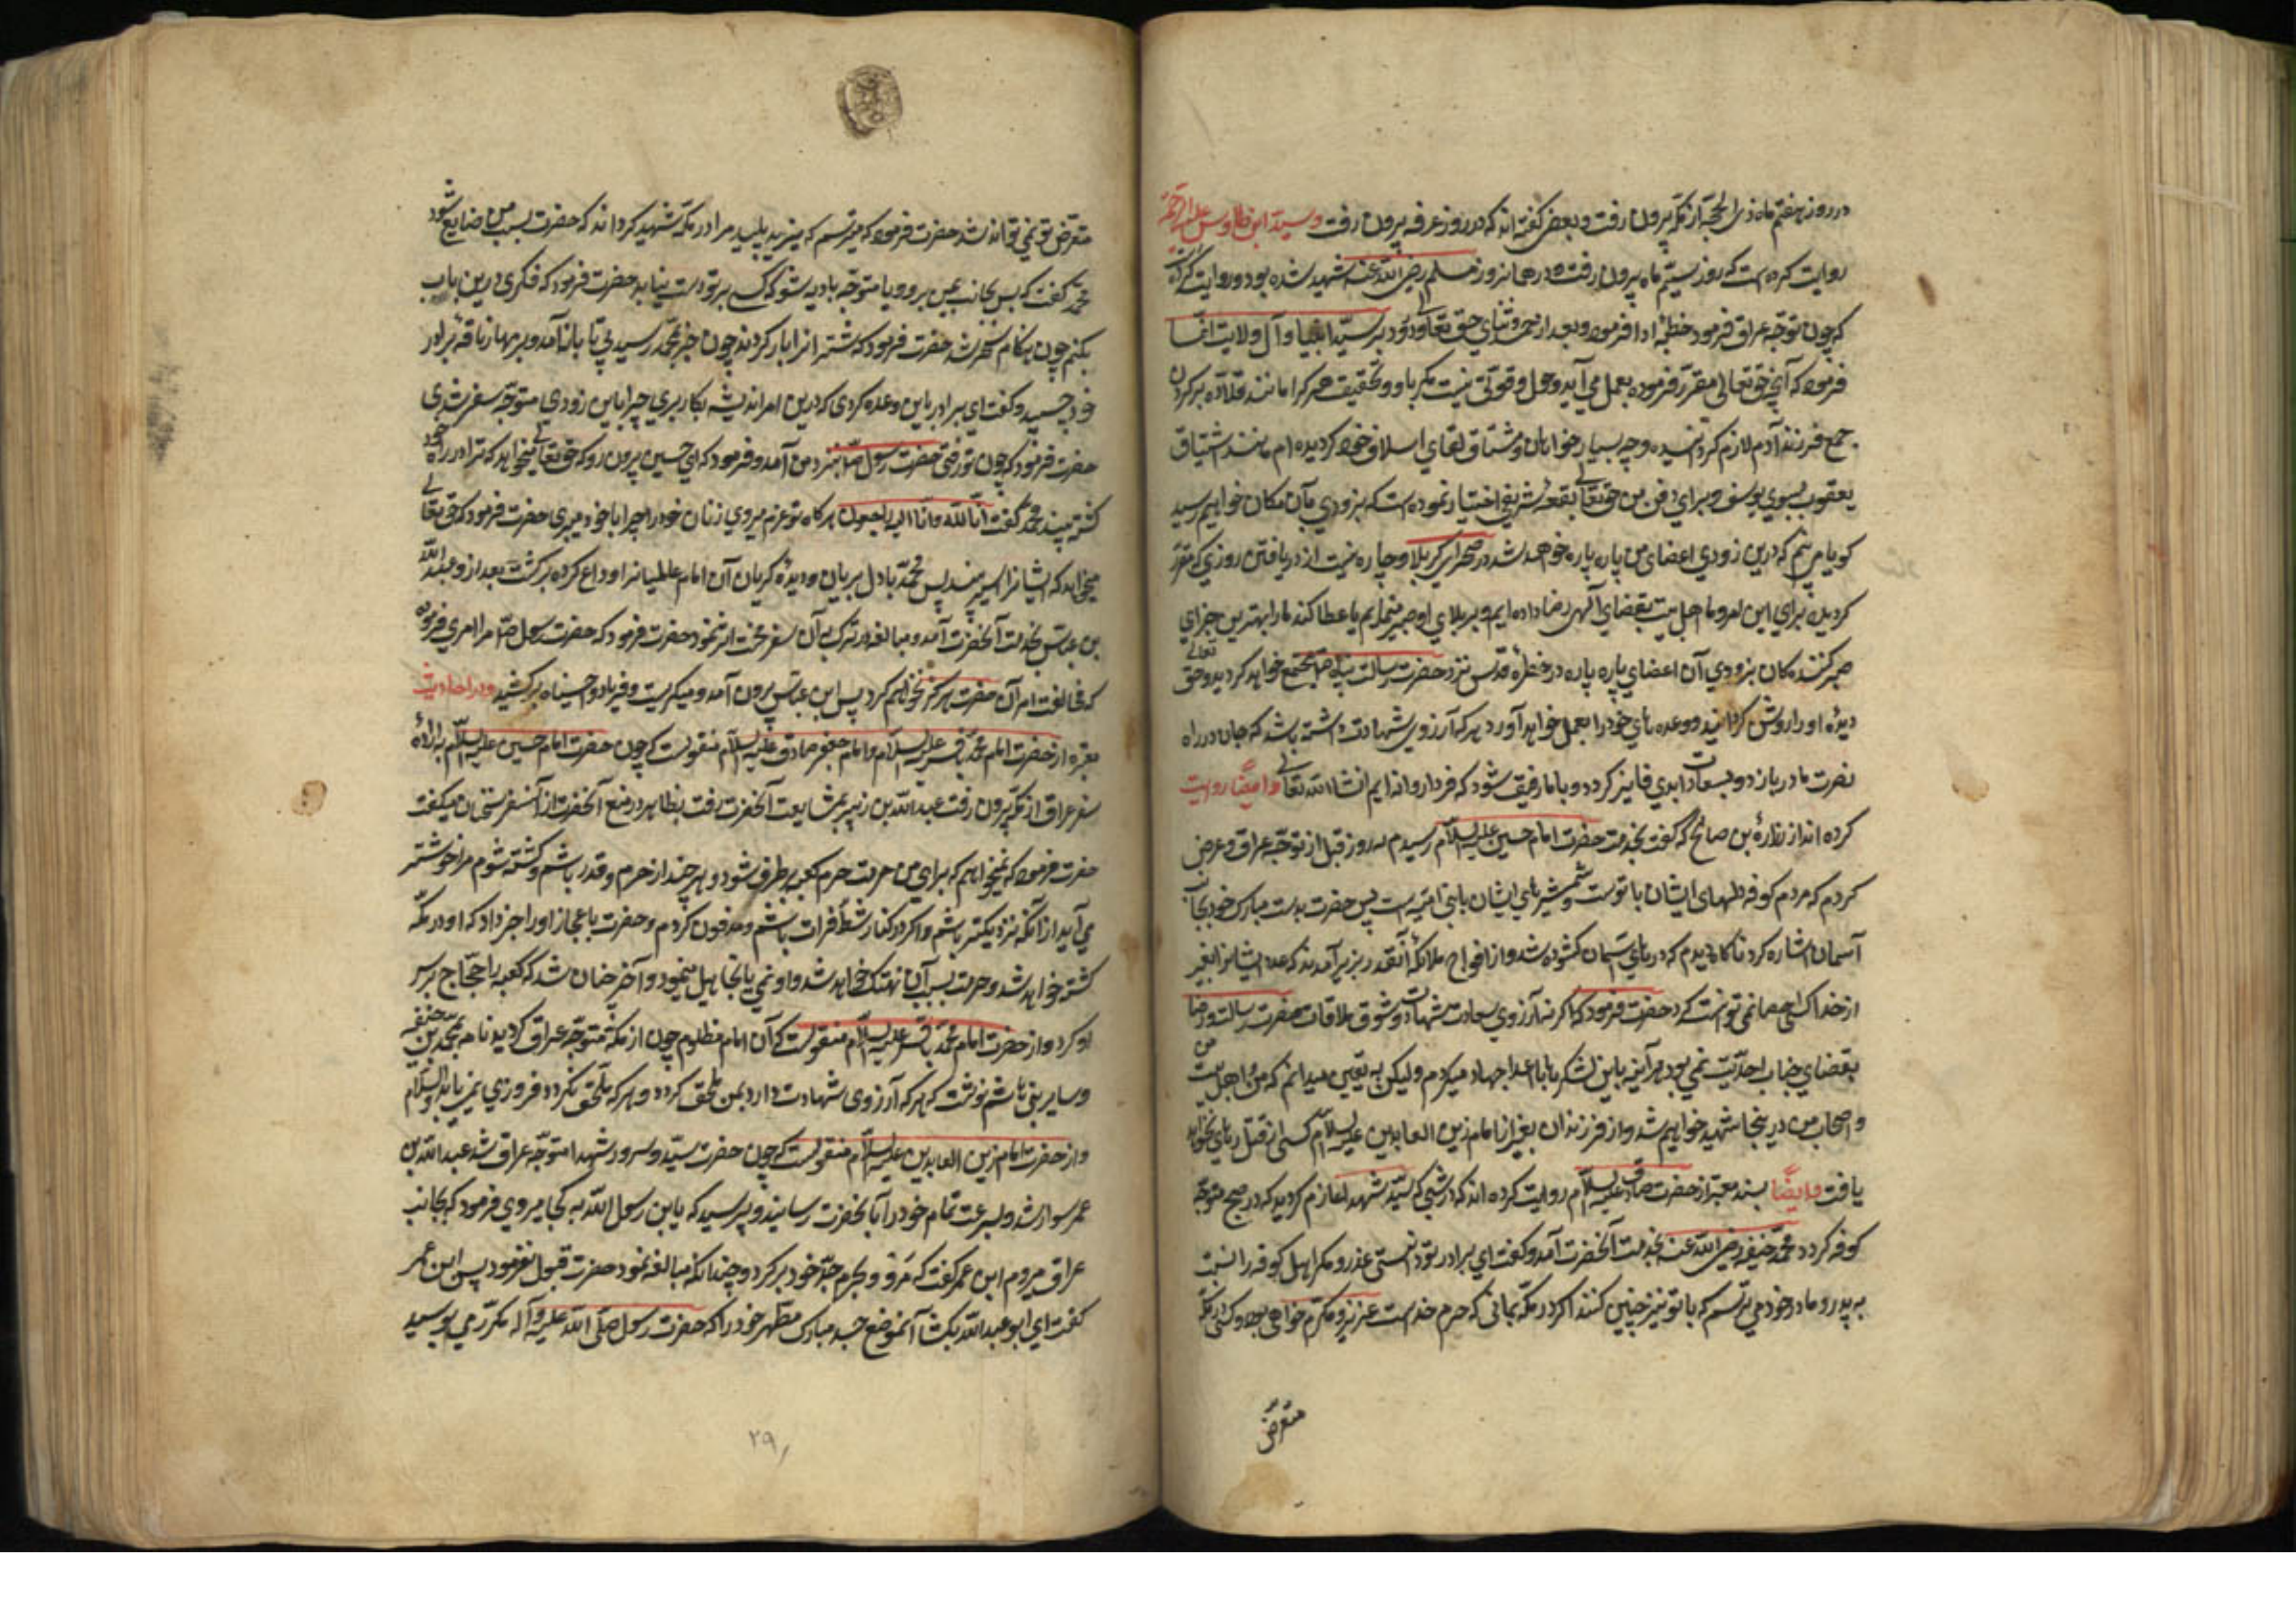 در روز هفتم ماه ذی الحجه از مکه بیرون رفت و بعضی گفته اند که در روز عرفه بیرون رفت و سید ابن طاوس علیه الرحمة
روایت کرده است که روز سیّم ماه بیرون رفت و در همانروز مسلم رضی الله عنه شهید شده بود و روایت کرده اند
که چون متوجه عراق فرمود خطبه ادا فرمود و بعد از حمد و ثنای حق تعالی و درود بر سیّد انبیا و آل ولایت
فرمود که آنچه حق تعالی مقرر فرموده بعمل می آید و حول و قوتی نیست مگر باو و بتحقیق که مرک را مانند قلاده بر کردن
جمیع فرزند آدم لازم کردانیده و چه بسیار خواهان و مشتاق لقای اسلاف خود کردیده ام مانند اشتیاق
یعقوب بسوی یوسف و برای دفن من حق تعالی بقعه شریفی اختیار نموده است که بزودی بآن مکان خواهم رسید
کویا می بینم که درین زودی اعضای من پاره پاره خواهد شد در صحرای کربلا و چاره نیست از دریافتن روزی که مقرر
کردیده برای این امر و ما اهل بیت بقضای الهی رضا داده ایم و بر بلای او صبر مینماییم تا عطا کند ما را بهترین جزای
صبر کنندکان بزودی آن اعضای پاره پاره در حظیره قدس نزد حضرت رسالت پناه ص مجتمع خواهد کردید و حق تعالی
دیده او را روشن کرداند و وعده های خود را بعمل خواهد آورد هر که آرزوی شهادت داشته باشد که جان در راه
نصرت ما دربازد و بسعادت ابدی فایز کردد و با ما رفیق شود که فردا روانه ایم انشاالله تعالی و ایضًا روایت
کرده اند از زرارة بن صالح که گفت بخدمت حضرت امام حسین علیه السلام رسیدم سه روز قبل از توجه عراق و عرض
کردم که مردم کوفه دلهای ایشان با تو است و شمشیرهای ایشان با بنی امیه است پس حضرت بدست مبارک خود بجانب
آسمان اشاره کرد ناکاه دیدم که درهای آسمان کشوده شد و از افواج ملائکه آنقدر بزیر آمدند که عدد ایشانرا بغیر
از خدا کسی احصا نمی توانست کرد حضرت فرمود که اکر نه آرزوی سعادت شهادت و شوق ملاقات حضرت رسالت و رضا
بقضای جناب احدیّت نمی بود هر آینه باین لشکرها با اعدا جهاد میکردم ولیکن به یقین میدانم که من و اهل بیت من
و اصحاب من در ینجا شهید خواهیم شد و از فرزندان بغیر از امام زین العابدین علیه السلام کسی از قتل رهای نخواهد
یافت و ایضًا بسند معتبر از حضرت صادق علیه السلام روایت کرده اند که در شبی که سیّد شهدا عازم کردید که در صبح متوجه
کوفه کردد محمد حنفیه رضی الله عنه بخدمت آنحضرت آمد و کفت ای برادر تو دانستی غدر و مکر اهل کوفه را نسبت
به پدر و مادر خود می ترسم که با تو نیز چنین کنند اکر در مکه بمانی که حرم خداست عزیز و مکرم خواهی بود و کسی در مکه
متعرض
متعرض تو نمی تواند شد حضرت فرمود که میترسم که یزید پلید مرا در مکه شهید کرداند که حضرت بسبب من ضایع شود
محمد کفت که پس بجانب یمن برو و یا متوجه بادیه شو که کسی بر تو دست نیابد حضرت فرمود که فکری درین باب
بکنم چون هنکام سحر شد حضرت فرمود که شتر انرا بار کردند چون خبر بمحمد رسید بی تابانه آمد و بر مهار ناقه برادر
خود چسپید و کفت ای برادر باین وعده کردی که درین امر اندیشه بکار بری چرا باین زودی متوجه سفر شدی
حضرت فرمود که چون تو رفتی حضرت رسول ص نزد من آمد و فرمود که ای حسین بیرون رو که حق تعالی میخواهد که ترا در راه خود
کشته بیند محمد کفت انا لله و انا الیه راجعون هرکاه تو عزم میروی زنان خود را چرا با خود میبری حضرت فرمود که حق تعالی
میخواهد که ایشانرا اسیر بیند پس محمد با دل بریان و دیده کریان آن امام را وداع کرده برکشت بعد از و عبدالله
بن عباس بخدمت آنحضرت آمد و مبالغه در ترک آن سفر محنت اثر نمود حضرت فرمود که حضرت رسول ص مرا امری فرموده
که مخالفت امر آن حضرت هرکز نخواهم کرد پس ابن عباس بیرون آمد و میکریست و فریاد وا حسیناه برکشید و در احادیث
معتبره از حضرت امام محمد باقر علیه السلام و امام جعفر صادق علیه السلام منقولست که چون حضرت امام حسین علیه السلام به اراده
سفر عراق از مکه بیرون رفت عبدالله بن زبیر بمشایعت آنحضرت رفت بظاهر در منع آنحضرت از آنسفر سخنان میکفت
حضرت فرمود که نمیخواهم که برای من حرمت حرم کعبه برطرف شود و هر چند از حرم دورتر باشم و کشته شوم مرا خوشتر
می آید از آنکه نزدیکتر باشم و اکر در کنار شط فرات باشم و مدفون کردم و حضرت باعجاز او را خبر داد که او در مکه
کشته خواهد شد و حرمت بسبب آن تهتک خواهد شد و او نمی تجاهل مینمود و آخر چنان شد که کعبه را حجّاج بر سر
او کرد و از حضرت امام محمد باقر علیه السلام منقولست که آن امام مظلوم چون از مکه متوجه عراق کردید نامه بمحمد بن حنفیه
و سایر بنی هاشم نوشت که هر که آرزوی شهادت دارد بمن ملحق کردد و هر که ملحق نکردد فیروزی نمی یابد والسلام
و از حضرت امام زین العابدین علیه السلام منقولست که چون حضرت سیّد و سرور شهدا متوجه عراق شد عبدالله بن
عمر سوار شد و بسرعت تمام خود را بآنحضرت رسانید و پرسید که یابن رسول الله به کجا میروی فرمود که بجانب
عراق میروم ابن عمر کفت که مرو و بحرم جدّ خود برکرد و چندانکه مبالغه نمود حضرت قبول نفرمود پس ابن عمر
کفت ای ابو عبدالله بکشا آنموضع جسد مبارک مطهر خود را که حضرت رسول صلی الله علیه و آله مکرّر می بوسید
۲۹